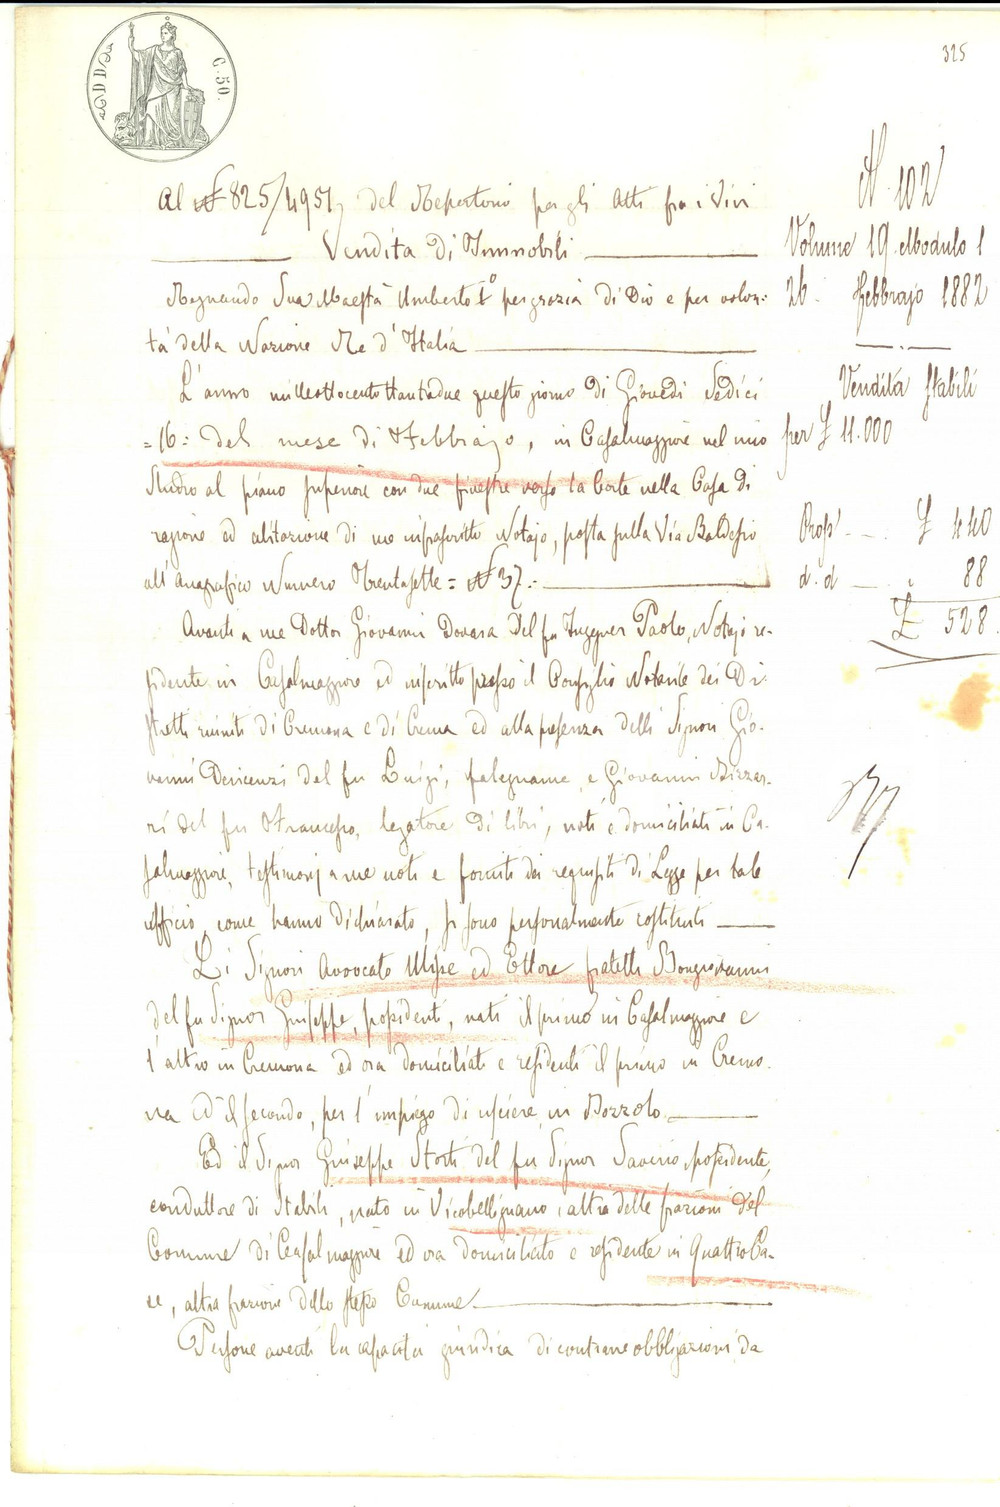 325
C. 50.
Al N° 825/4951 del Repertorio per gli Atti fra i Vivi
Vendita di Immobili
Regnando Sua Maestà Umberto I° per grazia di Dio e per volon-
tà della Nazione Re d'Italia
L'anno milleottocentottantadue questo giorno di Giovedì Sedici
=16= del mese di Febbrajo, in Casalmaggiore nel mio
Studio al piano superiore con due finestre verso la Corte nella Casa di
ragione ed abitazione di me infrascritto Notajo, posta sulla Via Baldesio
all'anagrafico Numero Trentasette = N° 37.=
Avanti a me Dottor Giovanni Dovara del fu Ingegner Paolo, Notajo re-
sidente in Casalmaggiore ed inscritto presso il Consiglio Notarile dei Di-
stretti riuniti di Cremona e di Crema ed alla presenza delli Signori Gio-
vanni Devicenzi del fu Luigi, falegname, e Giovanni Bizzar-
ri del fu Francesco, legatore di libri, noti e domiciliati in Ca-
salmaggiore, testimonj a me noti e forniti dei requisiti di Legge per tale
officio, come hanno dichiarato, si sono personalmente costituiti
Li Signori Avvocato Ulisse ed Ettore fratelli Bongiovanni
del fu Signor Giuseppe, possidenti, nati il primo in Casalmaggiore e
l'altro in Cremona ed ora domiciliati e residenti il primo in Cremo-
na ed il secondo, per l'impiego di usciere, in Bozzolo.
Ed il Signor Giuseppe Storti del fu Signor Saverio, possidente,
conduttore di Stabili, nato in Vicobellignano, altra delle frazioni del
Comune di Casalmaggiore ed ora domiciliato e residente in Quattro Ca-
se, altra frazione dello stesso Comune.
Persone aventi la capacità giuridica di contrarre obbligazioni da
N. 102
Volume 19. Modulo 1
26. Febbrajo 1882
Vendita stabili
per £ 11.000
Prop° £ 440
d. d " 88
£ 528.